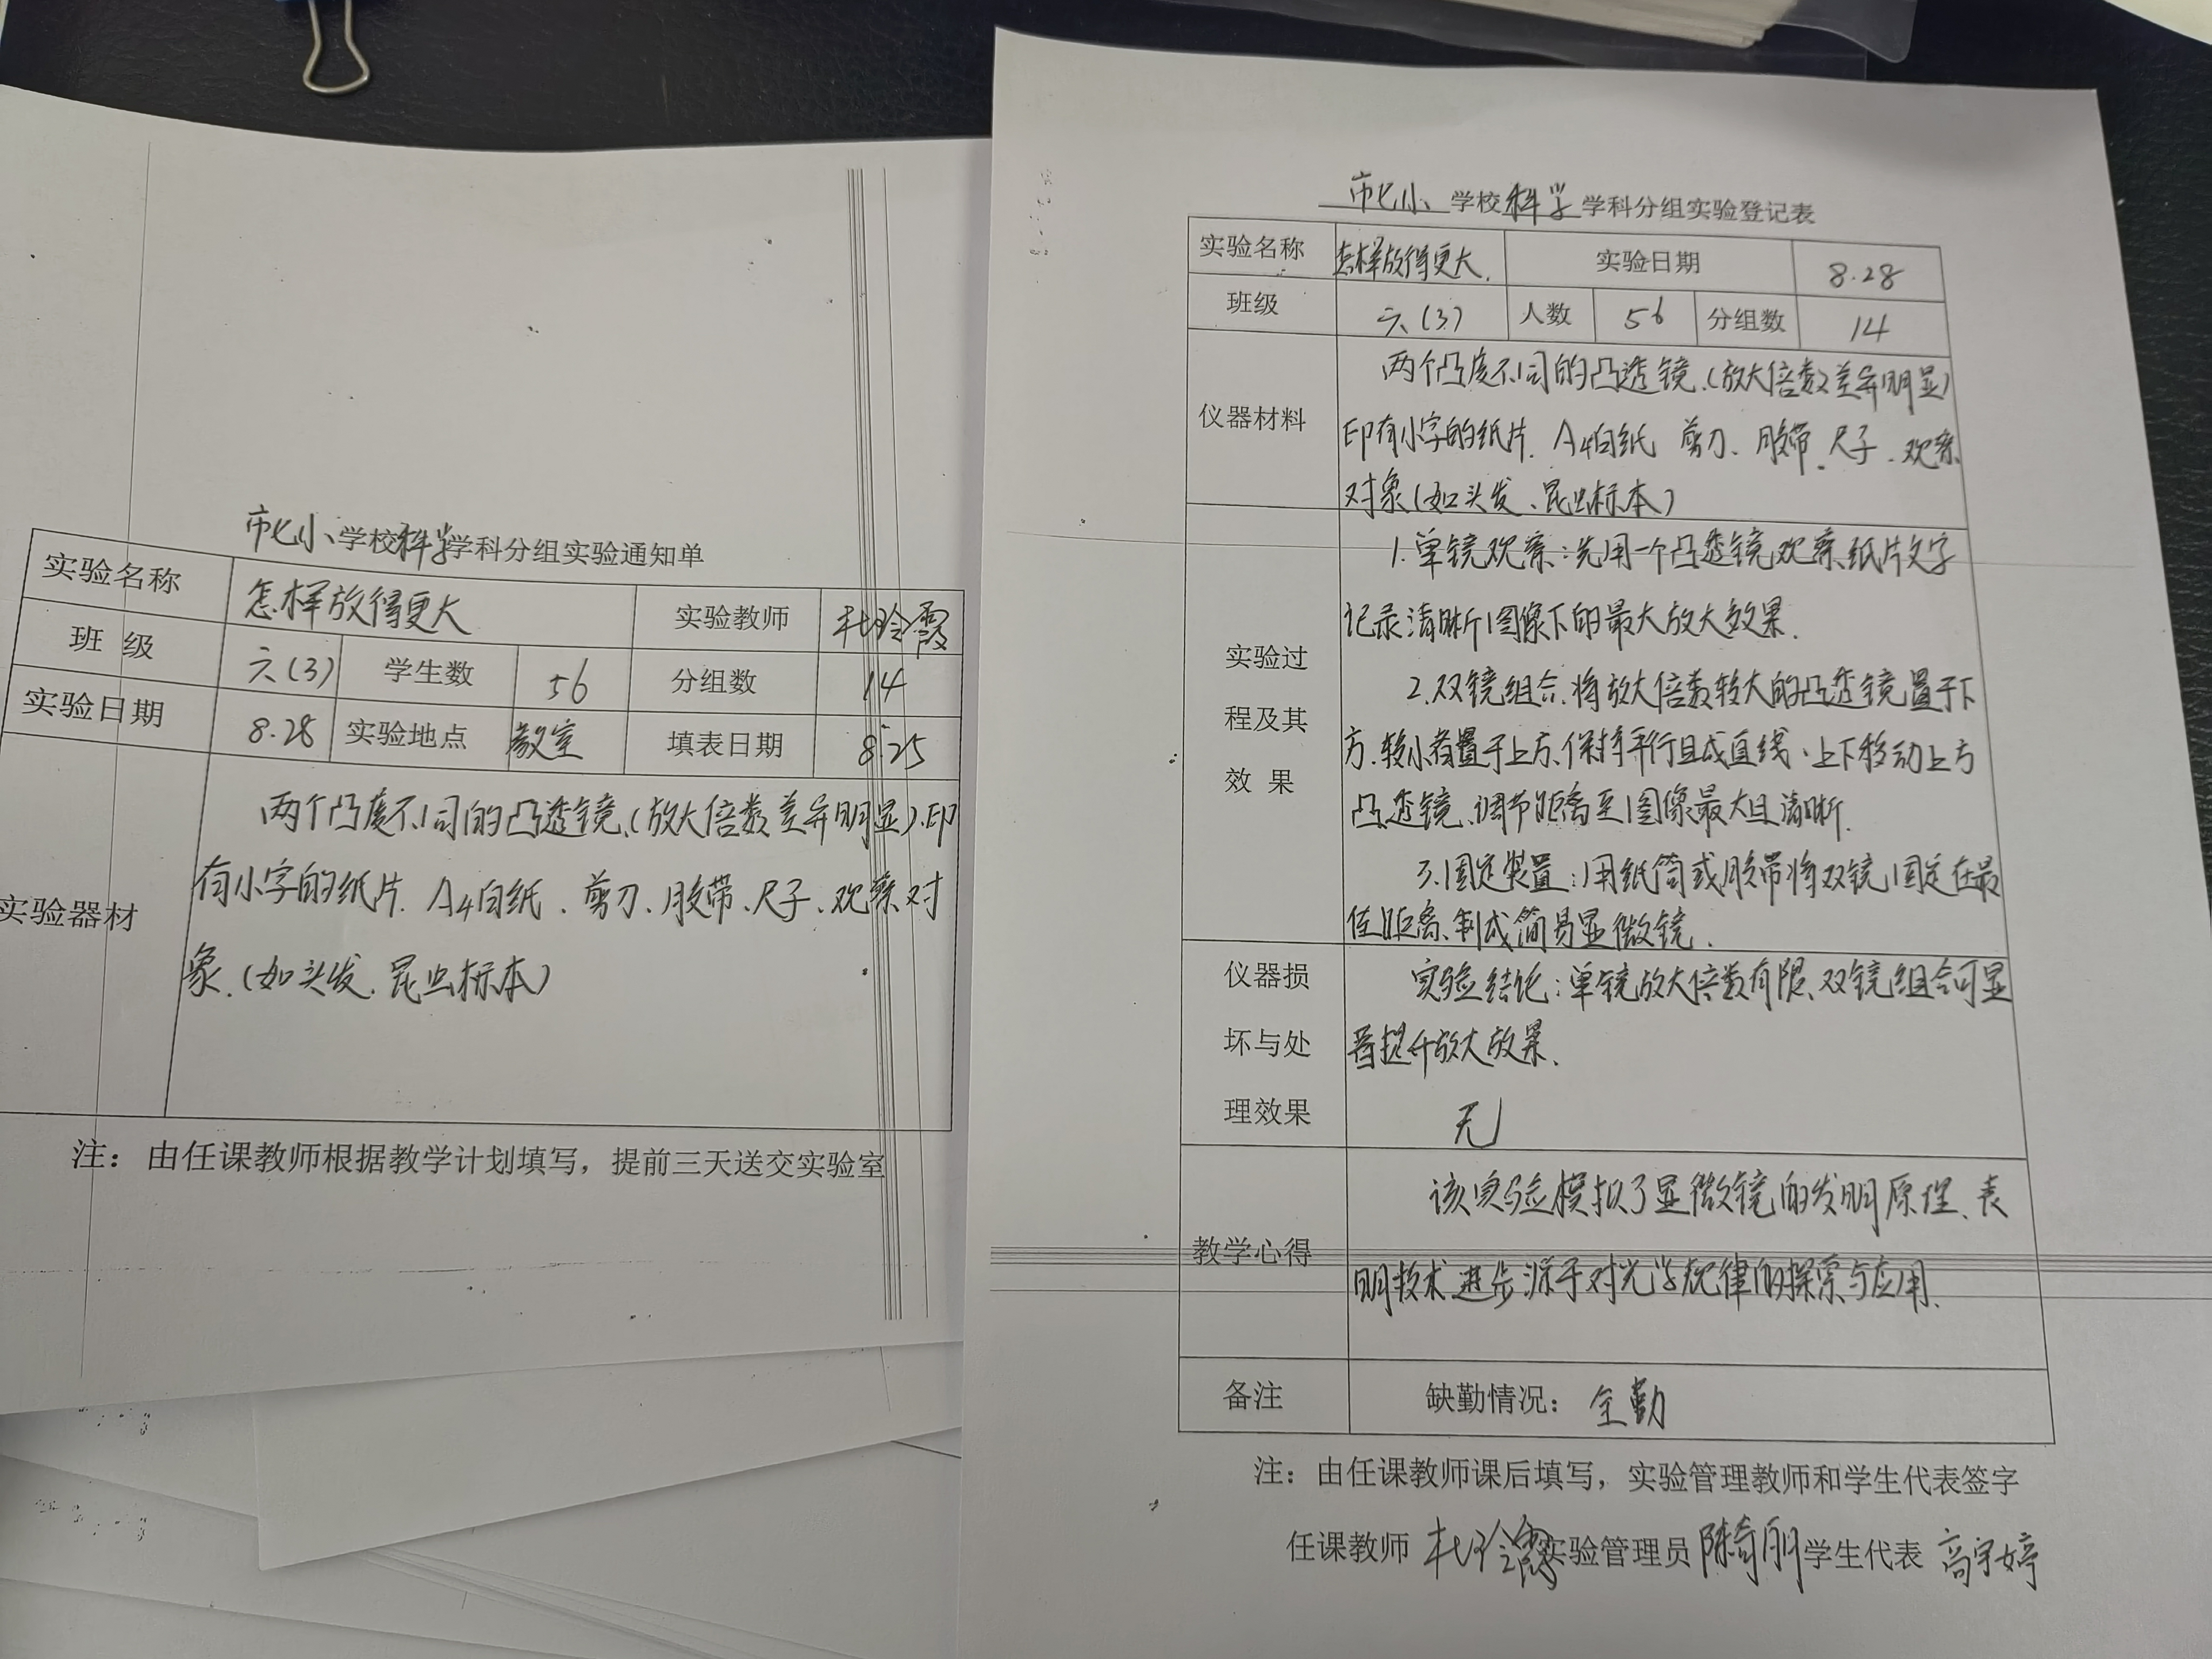 市七小学校科学学科分组实验通知单
实验名称 怎样放得更大 实验教师 杜玲霞
班 级 六(3) 学生数 56 分组数 14
实验日期 8.28 实验地点 教室 填表日期 8.25
实验器材
两个凸度不同的凸透镜、(放大倍数差异明显)、印
有小字的纸片、A4白纸、剪刀、胶带、尺子、观察对
象.(如头发、昆虫标本)
注：由任课教师根据教学计划填写，提前三天送交实验室
市七小学校科学学科分组实验登记表
实验名称 怎样放得更大. 实验日期 8.28
班级 六(3) 人数 56 分组数 14
仪器材料
两个凸度不同的凸透镜、(放大倍数差异明显)
印有小字的纸片、A4白纸 剪刀、胶带、尺子、观察
对象(如头发、昆虫标本)
实验过
程及其
效 果
1.单镜观察:先用一个凸透镜观察纸片文字
记录清晰图像下的最大放大效果.
2.双镜组合.将放大倍数较大的凸透镜置于下
方.较小者置于上方、保持平行且成直线、上下移动上方
凸透镜、调节距离至图像最大且清晰.
3.固定装置:用纸筒或胶带将双镜固定在最
佳距离、制成简易显微镜.
仪器损
坏与处
理效果
实验结论:单镜放大倍数有限、双镜组合可显
著提升放大效果.
无
教学心得
该实验模拟了显微镜的发明原理、表
明技术进步源于对光学规律的探索与应用.
备注 缺勤情况：全勤
注：由任课教师课后填写，实验管理教师和学生代表签字
任课教师 杜玲霞 实验管理员 陈奇朋 学生代表 高宇婷